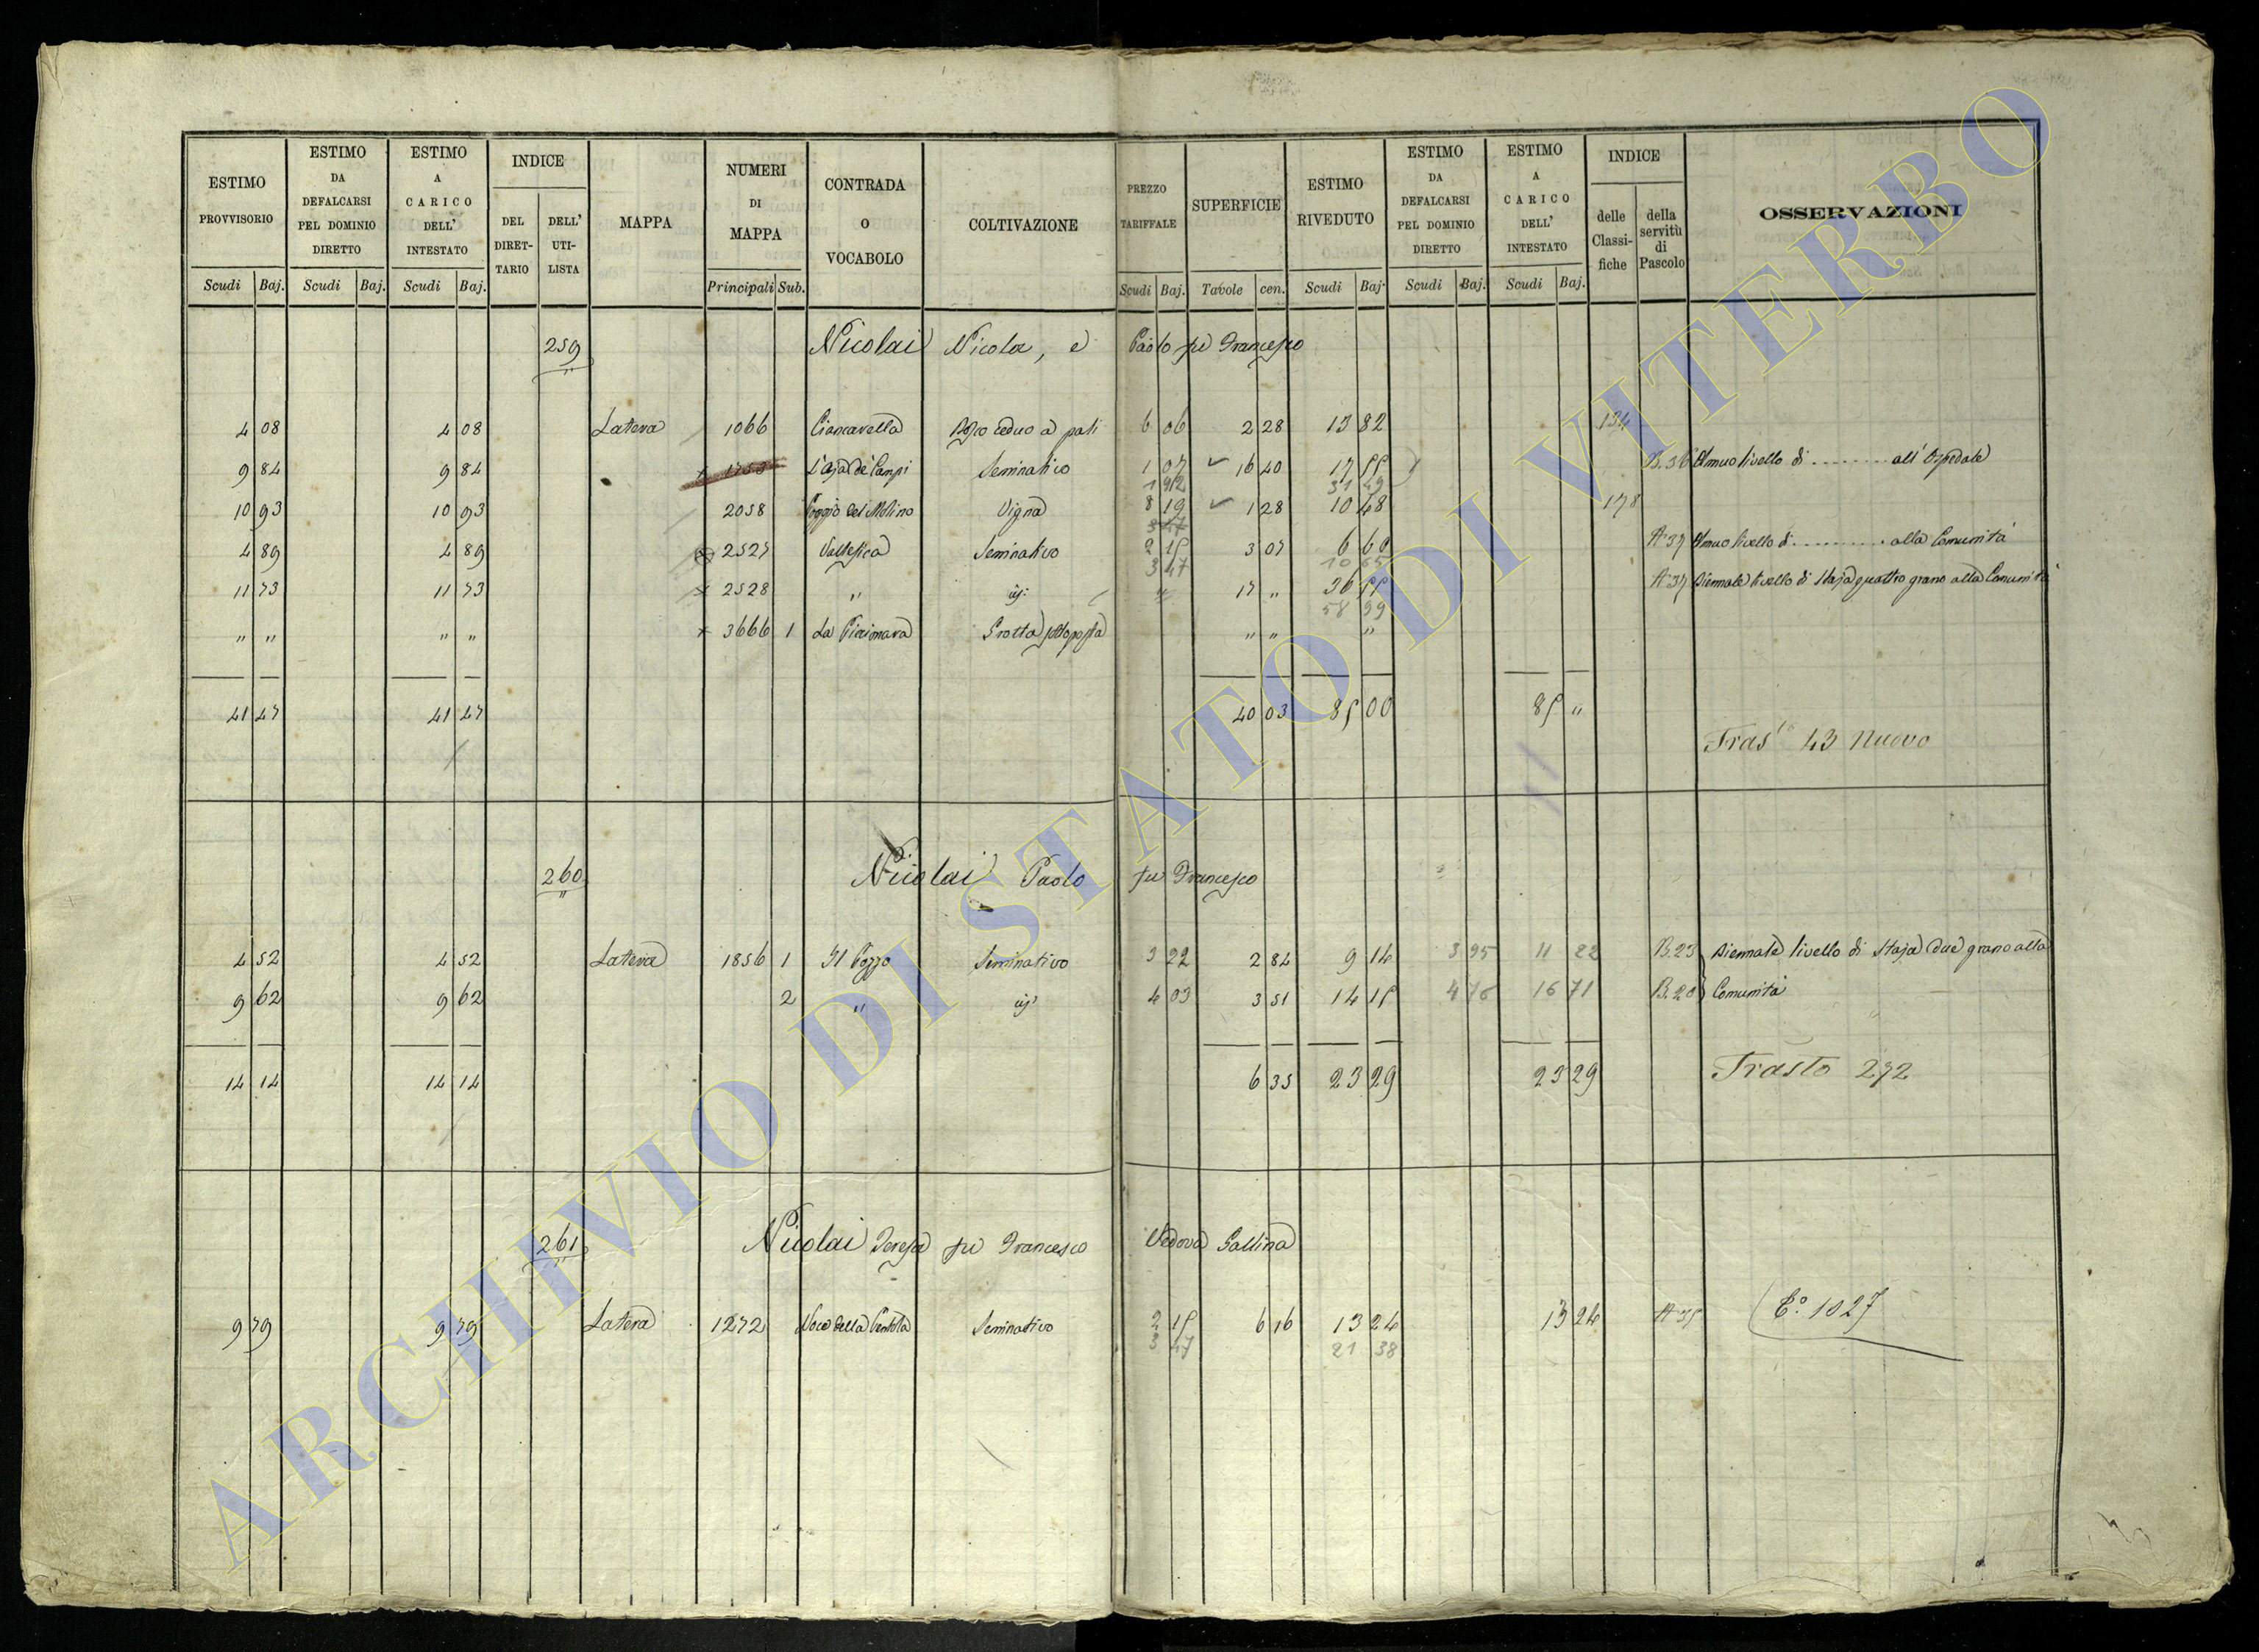 ESTIMO PROVVISORIO | ESTIMO DA DEFALCARSI PEL DOMINIO DIRETTO | ESTIMO A CARICO DELL' INTESTATO | INDICE | MAPPA | NUMERI DI MAPPA | CONTRADA O VOCABOLO | COLTIVAZIONE | PREZZO TARIFFALE | SUPERFICIE | ESTIMO RIVEDUTO | ESTIMO DA DEFALCARSI PEL DOMINIO DIRETTO | ESTIMO A CARICO DELL' INTESTATO | INDICE | OSSERVAZIONI
DEL DIRETTARIO | DELL' UTILISTA | delle Classifiche | della servitù di Pascolo
Scudi | Baj. | Scudi | Baj. | Scudi | Baj. | Principali | Sub. | Scudi | Baj. | Tavole | cen. | Scudi | Baj. | Scudi | Baj. | Scudi | Baj.
259 Nicolai Nicola, e Paolo fu Francesco
4 08 4 08 Latera 1066 Ciancavella Bosco ceduo a pali 6 06 2 28 13 82 134
9 84 9 84 L'Aja de Campi Seminativo 1 07 16 40 17 55 B.36 Annuo livello di ........ all' Ospedale
1 92 31 49
10 93 10 93 2058 Poggio del Molino Vigna 8 19 1 28 10 48 178
4 89 4 89 2527 Vallesica Seminativo 2 15 3 07 6 60 A 37 Annuo livello di .......... alla Comunità
3 47 10 65
11 73 11 73 2528 " id: " 17 " 36 55 A 37 Biennale livello di Staja quattro grano alla Comunità
58 99
" " " " 3666 1 La Grotta sottoposta " " "
41 47 41 47 40 03 85 00 85 "
Tras.to 43 Nuovo
260 Nicolai Paolo fu Francesco
4 52 4 52 Latera 1856 1 Il Pozzo Seminativo 3 22 2 84 9 14 3 95 11 22 B.23 Biennale livello di Staja due grano alla
9 62 9 62 2 " id: 4 03 3 51 14 15 4 76 16 71 B.20 Comunità
14 14 14 14 6 35 23 29 23 29 Trasto 272
261 Nicolai Teresa fu Francesco Vedova Gallina
9 79 9 79 Latera 1272 Seminativo 2 15 6 16 13 24 13 24 A 35 E.° 1027
3 47 21 38
ARCHIVIO DI STATO DI VITERBO